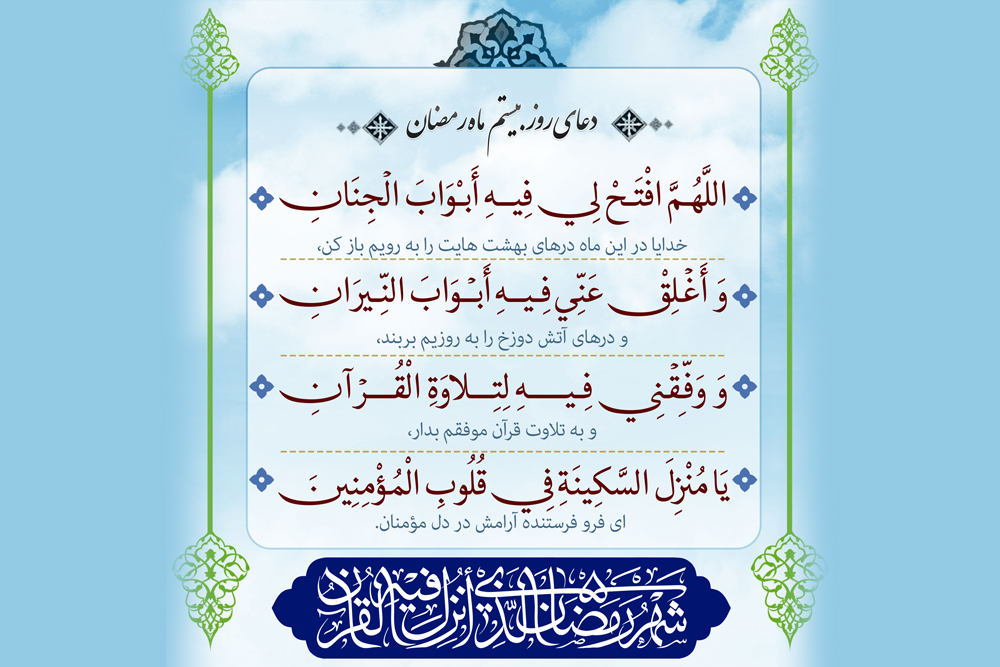 دعای روز بیستم ماه رمضان
اللَّهُمَّ افْتَحْ لِي فِيهِ أَبْوَابَ الْجِنَانِ
خدایا در این ماه درهای بهشت هایت را به رویم باز کن،
وَ أَغْلِقْ عَنِّي فِيهِ أَبْوَابَ النِّيرَانِ
و درهای آتش دوزخ را به روزیم بربند،
وَ وَفِّقْنِي فِيهِ لِتِلاوَةِ الْقُرْآنِ
و به تلاوت قرآن موفقم بدار،
يَا مُنْزِلَ السَّكِينَةِ فِي قُلُوبِ الْمُؤْمِنِينَ
ای فرو فرستنده آرامش در دل مؤمنان.
شَهْرُ رَمَضَانَ الَّذِي أُنْزِلَ فِيهِ الْقُرْآنُ